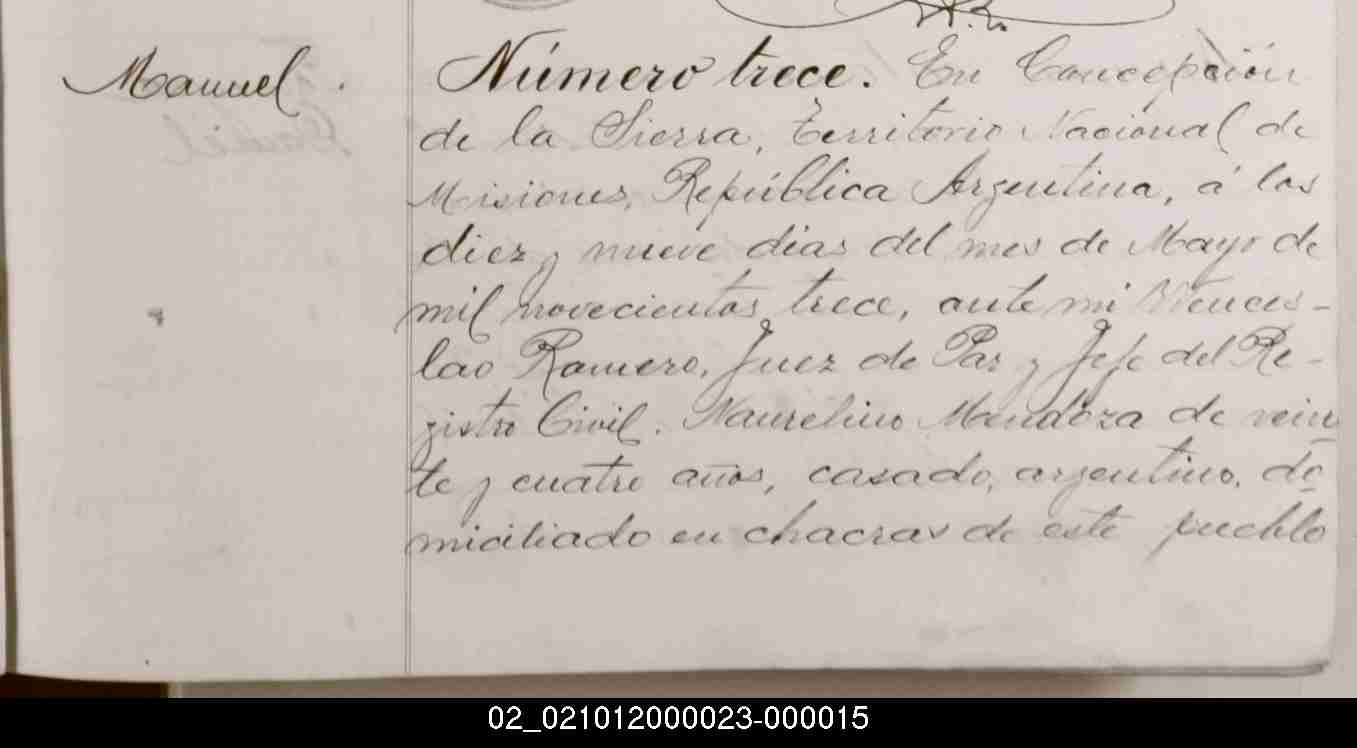 Manuel.
Número trece. En Concepción
de la Sierra, Territorio Nacional de
Misiones, República Argentina, á los
diez y nueve dias del mes de Mayo de
mil novecientos trece, ante mi Wences-
lao Romero, Juez de Paz y Jefe del Re-
gistro Civil. Maurelino Mendoza de vein
te y cuatro años, casado, argentino, do
miciliado en chacras de este pueblo
02_021012000023-000015